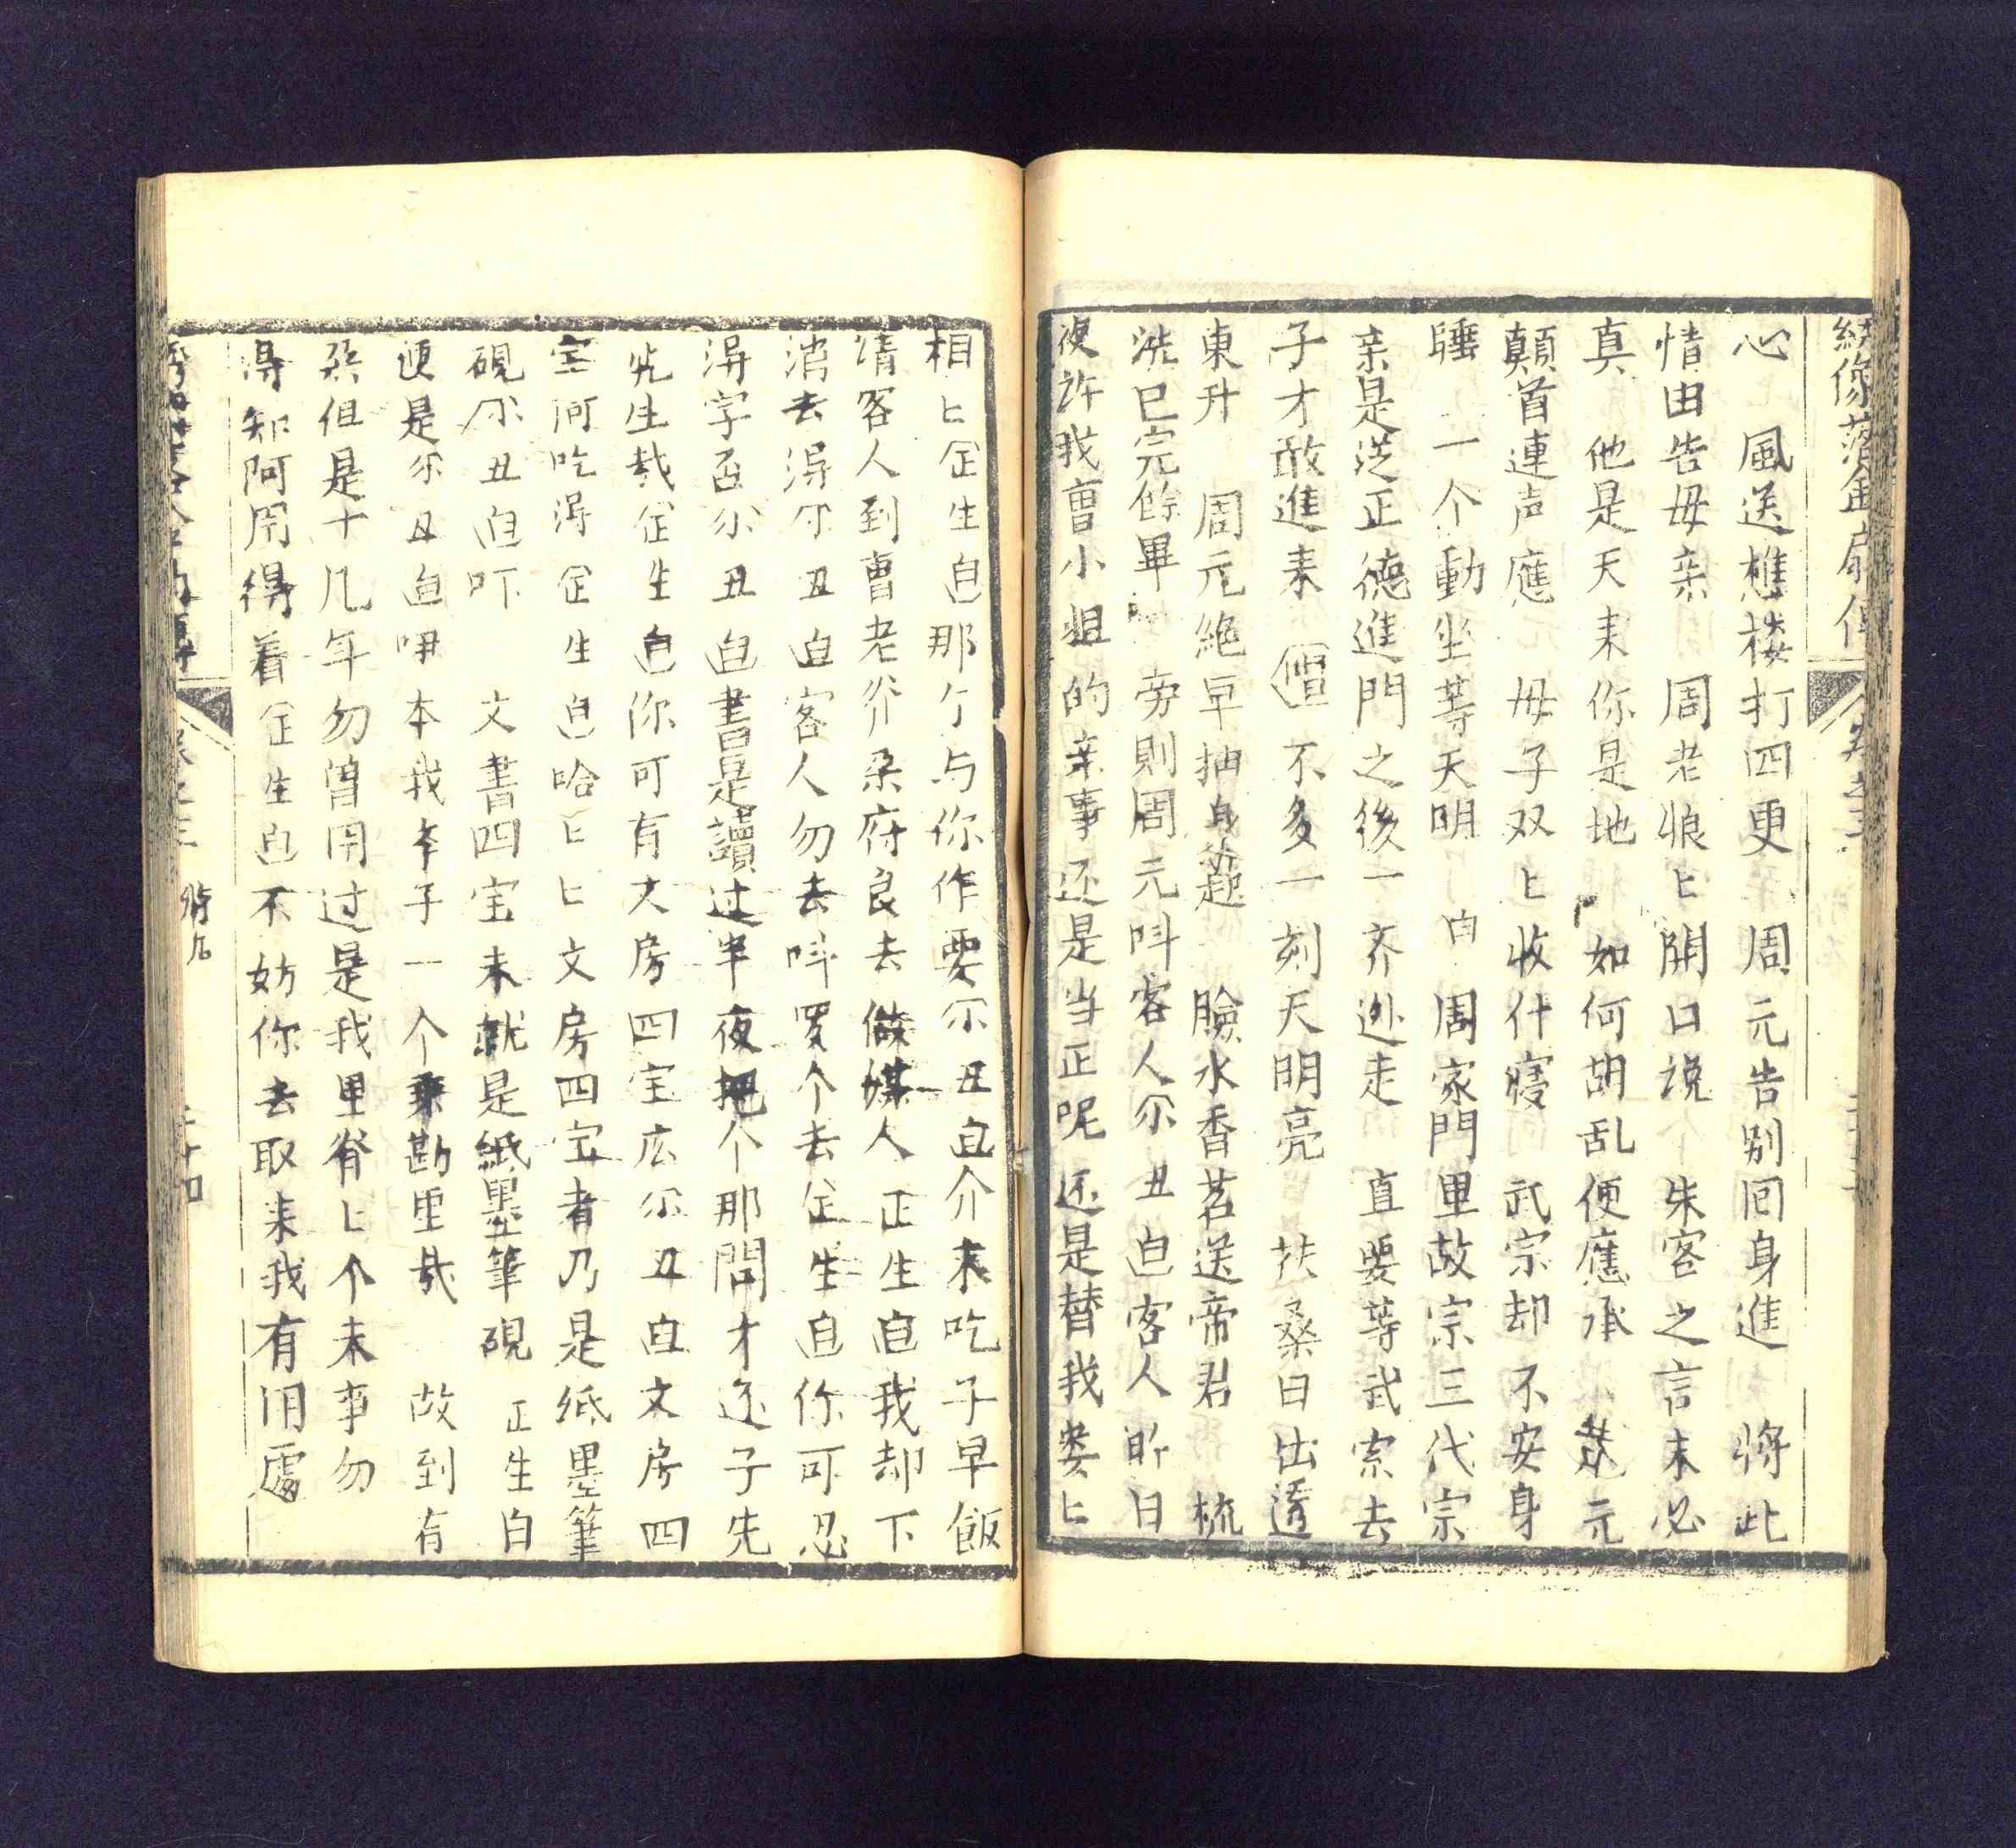 繞像落金扇傳
心 風送樵楼打四更 周元告别回身進 將此
情由告母亲 周老娘匕開口说 朱客之言未必
真 他是天来你是地 如何胡乱便應承 周元
顛首連声應 母子双匕收什寝 武宗却不安身
睡 一个動坐等天明 白 周家門里故宗三代宗
亲是送正德進門之後一齐逃走 直要等武宗去
子才敢進来 不多一刻天明亮 扶桑日出透
東升 周元絶早抽身起 臉水香茗送帝君 梳
洗已完餘畢 旁則周元呌客人尔丑白客人昨日
復許我曹小姐的亲事还是当正呢还是替我娄匕
相匕㑒生白那亇与你作要尔丑白介来吃子早飯
清客人到曹老爷朶府良去做媒人正生白我却下
消去淂尔丑白客人勿去呌罗个去㑒生白你可忍
淂字否尔丑白書是讀过半夜把个那間才还子先
先生哉㑒生白你可有文房四宝広尔丑白文房四
宝何吃淂㑒生白哈匕匕文房四宝者乃是紙墨筆
硯尔丑白吓 文書四宝来就是紙墨筆硯 正生白
便是尔丑白吚本我李子一个乘勘里哉 故到有
介但是十几年勿曾用过是我里爷匕个本事勿
淂知阿用得着㑒生白不妨你去取来我有用處
卷之三
二十四